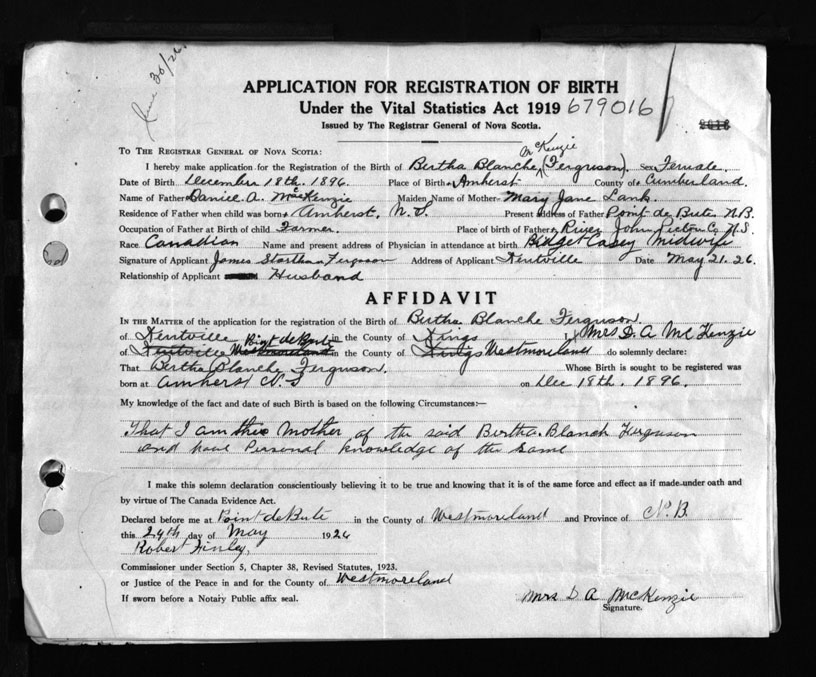 June 30/26
APPLICATION FOR REGISTRATION OF BIRTH
Under the Vital Statistics Act 1919 679016
Issued by The Registrar General of Nova Scotia.
TO THE REGISTRAR GENERAL OF NOVA SCOTIA:
McKenzie
I hereby make application for the Registration of the Birth of Bertha Blanche (Ferguson). Sex Female.
Date of Birth December 18th. 1896. Place of Birth Amherst County of Cumberland.
Name of Father Daniel A. McKenzie Maiden Name of Mother Mary Jane Lank.
Residence of Father when child was born Amherst, N.S. Present address of Father Point de Bute N.B.
Occupation of Father at Birth of child Farmer. Place of birth of Father River John Pictou Co N.S.
Race Canadian Name and present address of Physician in attendance at birth Bidget Casey Midwife
Signature of Applicant James Ferguson Address of Applicant Kentville Date May 21. 26.
Relationship of Applicant Husband
AFFIDAVIT
IN THE MATTER of the application for the registration of the Birth of Bertha Blanche Ferguson.
of Kentville in the County of Kings, Mrs D. A McKenzie
of Kentville Point de Bute Westmoreland in the County of Kings Westmoreland do solemnly declare:
That Bertha Blanche Ferguson. Whose Birth is sought to be registered was
born at Amherst N.S on Dec 18th. 1896.
My knowledge of the fact and date of such Birth is based on the following Circumstances:—
That I am the Mother of the said Bertha. Blanch Ferguson
and have Personal knowledge of the same
I make this solemn declaration conscientiously believing it to be true and knowing that it is of the same force and effect as if made under oath and
by virtue of The Canada Evidence Act.
Declared before me at Point de Bute in the County of Westmoreland and Province of N.B.
this 29th day of May 1926
Robert Finley,
Commissioner under Section 5, Chapter 38, Revised Statutes, 1923.
or Justice of the Peace in and for the County of Westmoreland
If sworn before a Notary Public affix seal.
Mrs D A McKenzie
Signature.